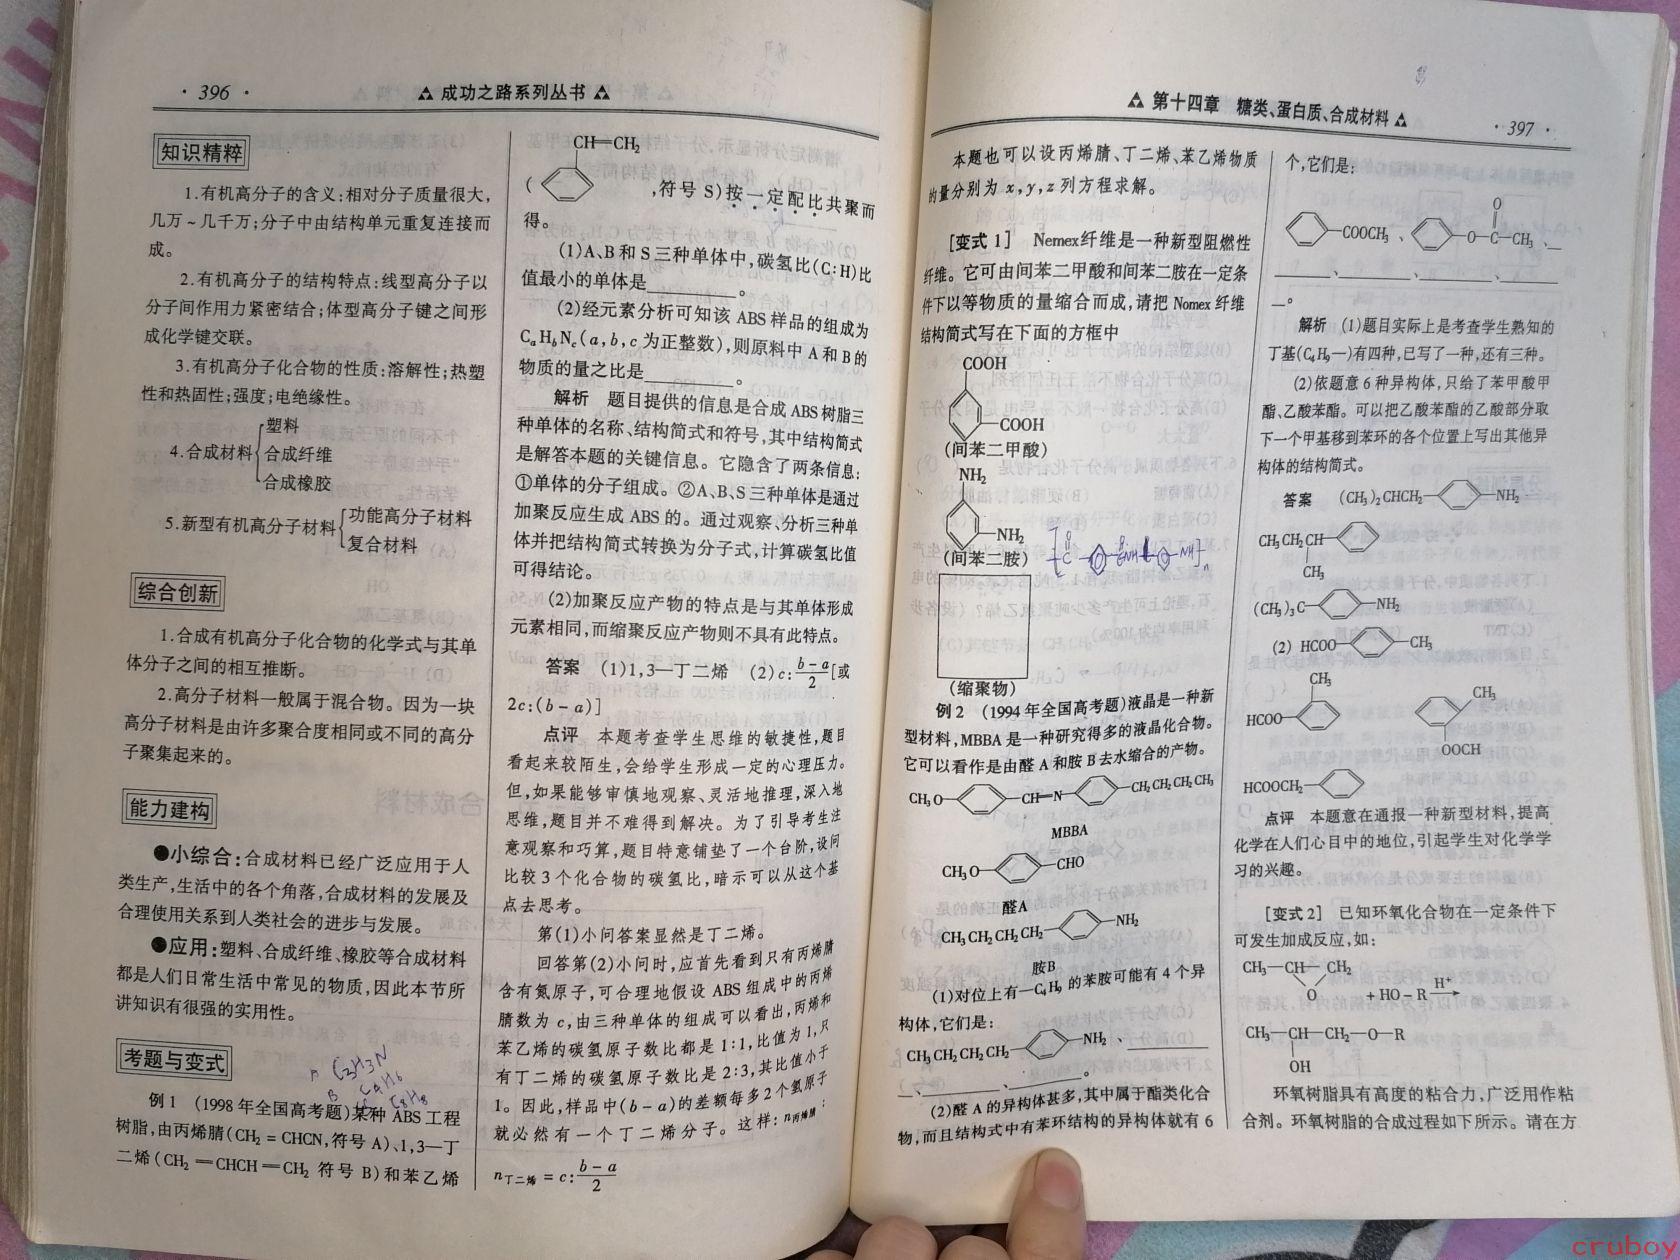 · 396 ·
成功之路系列丛书
知识精粹
1.有机高分子的含义:相对分子质量很大,
几万~几千万;分子中由结构单元重复连接而
成。
2.有机高分子的结构特点:线型高分子以
分子间作用力紧密结合;体型高分子键之间形
成化学键交联。
3.有机高分子化合物的性质:溶解性;热塑
性和热固性;强度;电绝缘性。
4.合成材料
塑料
合成纤维
合成橡胶
5.新型有机高分子材料
功能高分子材料
复合材料
综合创新
1.合成有机高分子化合物的化学式与其单
体分子之间的相互推断。
2.高分子材料一般属于混合物。因为一块
高分子材料是由许多聚合度相同或不同的高分
子聚集起来的。
能力建构
●小综合:合成材料已经广泛应用于人
类生产,生活中的各个角落,合成材料的发展及
合理使用关系到人类社会的进步与发展。
●应用:塑料、合成纤维、橡胶等合成材料
都是人们日常生活中常见的物质,因此本节所
讲知识有很强的实用性。
考题与变式
A C₃H₃N
B C₄H₆
C₈H₈
例1 (1998年全国高考题)某种 ABS 工程
树脂,由丙烯腈(CH₂=CHCN,符号 A)、1,3—丁
二烯(CH₂=CHCH=CH₂ 符号 B)和苯乙烯
CH=CH₂
( ,符号 S)按一定配比共聚而
得。
(1)A、B和 S三种单体中,碳氢比(C:H)比
值最小的单体是________。
(2)经元素分析可知该 ABS 样品的组成为
CₐH_bN_c(a,b,c为正整数),则原料中 A 和 B 的
物质的量之比是________。
解析 题目提供的信息是合成 ABS 树脂三
种单体的名称、结构简式和符号,其中结构简式
是解答本题的关键信息。它隐含了两条信息:
①单体的分子组成。②A、B、S三种单体是通过
加聚反应生成 ABS 的。通过观察、分析三种单
体并把结构简式转换为分子式,计算碳氢比值
可得结论。
(2)加聚反应产物的特点是与其单体形成
元素相同,而缩聚反应产物则不具有此特点。
答案 (1)1,3—丁二烯 (2)c:(b-a)/2[或
2c:(b-a)]
点评 本题考查学生思维的敏捷性,题目
看起来较陌生,会给学生形成一定的心理压力。
但,如果能够审慎地观察、灵活地推理,深入地
思维,题目并不难得到解决。为了引导考生注
意观察和巧算,题目特意铺垫了一个台阶,设问
比较3个化合物的碳氢比,暗示可以从这个基
点去思考。
第(1)小问答案显然是丁二烯。
回答第(2)小问时,应首先看到只有丙烯腈
含有氮原子,可合理地假设 ABS 组成中的丙烯
腈数为 c,由三种单体的组成可以看出,丙烯和
苯乙烯的碳氢原子数比都是1:1,比值为1,只
有丁二烯的碳氢原子数比是2:3,其比值小于
1。因此,样品中(b-a)的差额每多2个氢原子
就必然有一个丁二烯分子。这样:n丙烯腈:
n丁二烯=c:(b-a)/2
第十四章 糖类、蛋白质、合成材料
· 397 ·
本题也可以设丙烯腈、丁二烯、苯乙烯物质
的量分别为 x,y,z 列方程求解。
[变式1] Nemex纤维是一种新型阻燃性
纤维。它可由间苯二甲酸和间苯二胺在一定条
件下以等物质的量缩合而成,请把 Nomex 纤维
结构简式写在下面的方框中
COOH
—COOH
(间苯二甲酸)
NH₂
—NH₂
(间苯二胺)
(缩聚物)
例2 (1994年全国高考题)液晶是一种新
型材料,MBBA 是一种研究得多的液晶化合物。
它可以看作是由醛 A 和胺 B 去水缩合的产物。
CH₃O— —CH=N— —CH₂CH₂CH₂CH₃
MBBA
CH₃O— —CHO
醛A
CH₃CH₂CH₂CH₂— —NH₂
胺B
(1)对位上有—C₄H₉ 的苯胺可能有4个异
构体,它们是:
CH₃CH₂CH₂CH₂— —NH₂、________
____、________、________。
(2)醛 A 的异构体甚多,其中属于酯类化合
物,而且结构式中有苯环结构的异构体就有6
个,它们是:
O
—COOCH₃、 —O—C—CH₃、__
________、________、________、________
__。
解析 (1)题目实际上是考查学生熟知的
丁基(C₄H₉—)有四种,已写了一种,还有三种。
(2)依题意6种异构体,只给了苯甲酸甲
酯、乙酸苯酯。可以把乙酸苯酯的乙酸部分取
下一个甲基移到苯环的各个位置上写出其他异
构体的结构简式。
答案 (CH₃)₂CHCH₂— —NH₂
CH₃CH₂CH—
CH₃
(CH₃)₃C— —NH₂
(2) HCOO— —CH₃
CH₃
HCOO—
CH₃
OOCH
HCOOCH₂—
点评 本题意在通报一种新型材料,提高
化学在人们心目中的地位,引起学生对化学学
习的兴趣。
[变式2] 已知环氧化合物在一定条件下
可发生加成反应,如:
CH₃—CH—CH₂
O + HO—R H⁺→
CH₃—CH—CH₂—O—R
OH
环氧树脂具有高度的粘合力,广泛用作粘
合剂。环氧树脂的合成过程如下所示。请在方
cruboy